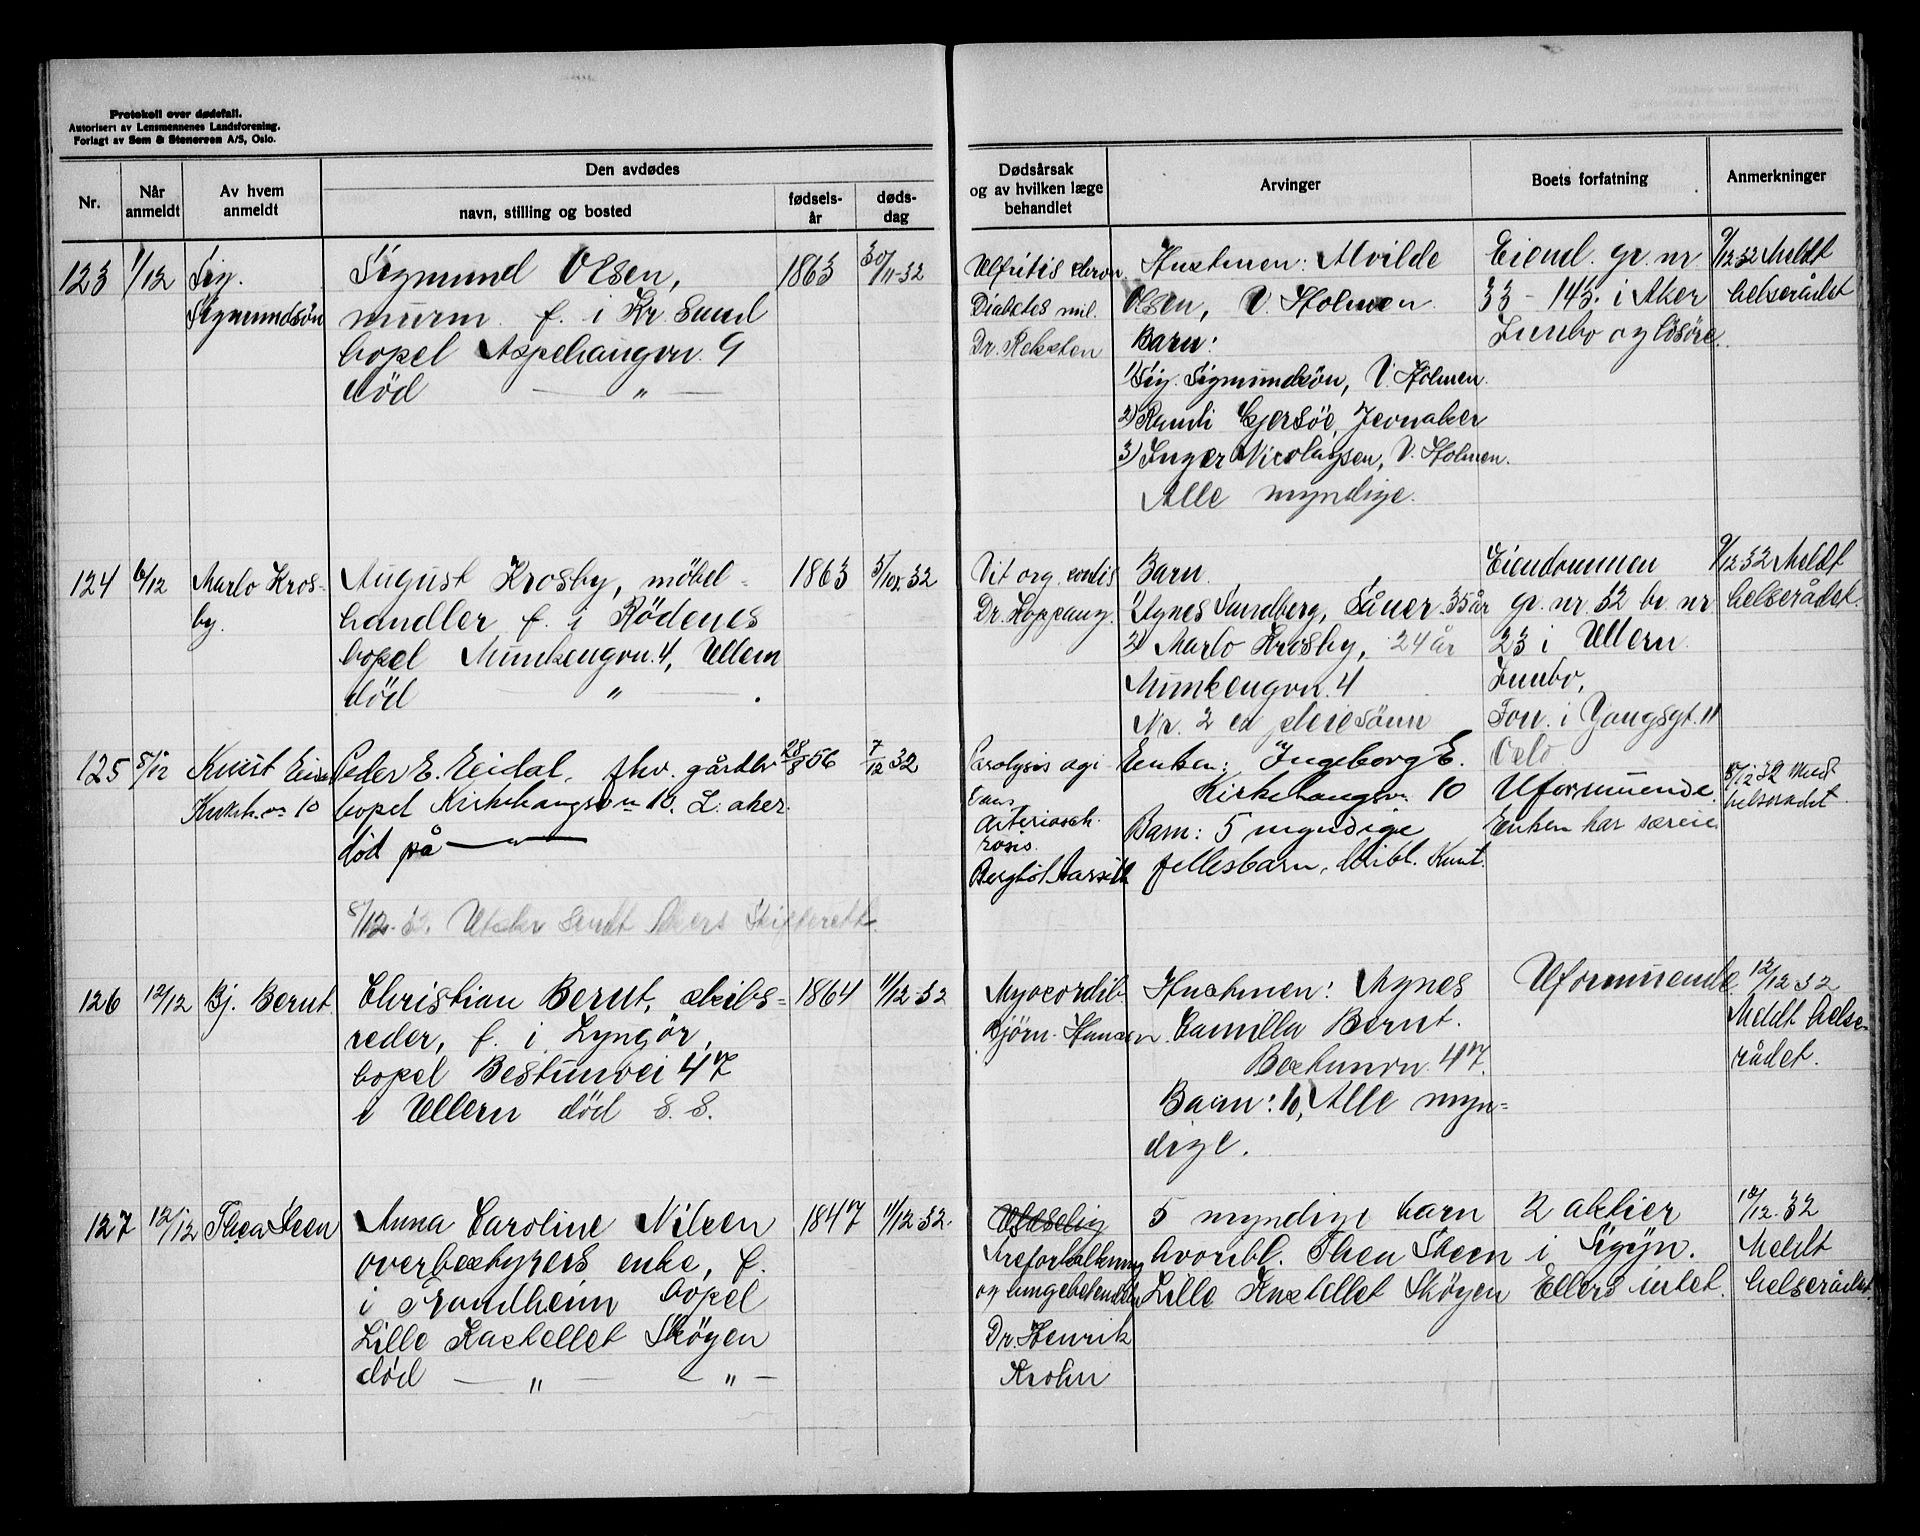 Protokoll over dødsfall.
Autorisert av Lensmennenes Landsforening.
Forlagt av Sem & Stenersen A/S, Oslo.
Nr.
Når anmeldt
Av hvem anmeldt
Den avdødes
navn, stilling og bosted
fødsels-år
døds-dag
Dødsårsak og av hvilken læge behandlet
Arvinger
Boets forfatning
Anmerkninger
123
1/12
Sig.
Sigmundsön
Sigmund Olsen,
murm. f. i Kr. Sund
bopel Aspehaugvn. 9
död — " —
1863
30/11-32
Diabetes mil.
Dr. Reksten
Hustruen: Alvilde
Olsen, V. Holmen
Barn:
1) Sig. Sigmundsön, V. Holmen.
2) Randi Gjersöe, Jevnaker
3) Inger Nicolaysen, V. Holmen.
Alle myndige.
Eiend. gr. nr
33 - 145. i Aker
Innbo og lösöre.
9/12-32 Meldt
helserådet
124
6/12
Marlo Kros-
by.
August Krosby, möbel-
handler f. i Rödenes
bopel Munkengvn. 4, Ullern
död " — .
1863
5/10. 32
Vit. org. cordis
Dr. Hoppang.
Barn.
1) Agnes Sundberg, Såner 35 år
2) Marlo Krosby, 24 år
Munkengvn. 4
Nr. 2 er pleiesönn
Eiendommen
gr. nr 32 br. nr
23 i Ullern.
Innbo,
Fon. i Youngsgt. 11
Oslo
9/12 32 Meldt
helserådet.
125
8/12
Knut Eidal
Kirkeh. vn 10
Peder E. Eidal, fhv. gårdbr
bopel Kirkehaugsvn 10. L. aker.
död på — " —
28/8 56
7/12 32
Paralysis agi
tans
Arteriosck-
rosis.
Enken: Ingeborg E.
Kirkehaugsv. 10
Barn: 5 myndige
fellesbarn, bl. Knut.
Uformuende.
Enken har særeie
8/12 32 Meldt
helserådet.
8/12. 32. Utskr sendt Akers Skifterett.
126
12/12
Bj. Bernt.
Christian Bernt, skibs-
reder, f. i Lyngör,
bopel Bestumvei 47
i Ullern död s. s.
1864
11/12-32
Myocordit
Björn-Hansen
Hustruen: Agnes
Camilla Bernt.
Bestumvn 47.
Barn: 10, Alle myn-
dige.
Uformuende.
12/12 32
Meldt helse-
rådet.
127
12/12
Thea Steen
Anna Caroline Nilsen
overbestyrers enke, f.
i Trondheim bopel
Lille Kastellet Sköyen
död — " — — " —
1847
11/12 32.
Areforkalkning
og lungebetendelse
Dr. Henrik
Krohn
5 myndige barn
hvoribl. Thea Steen
Lille Kastellet Sköyen
2 aktier
i Sigyn.
Ellers intet.
12/12. 32
Meldt
helserådet.